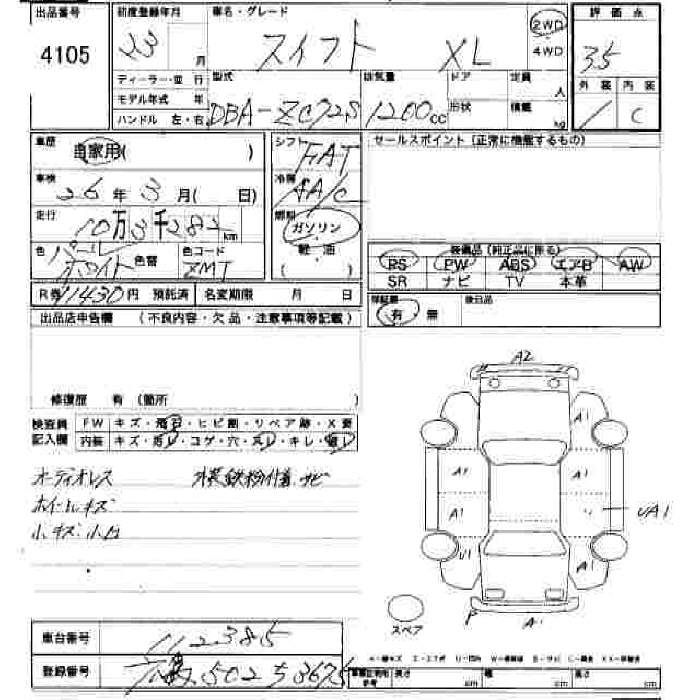 出品番号 4105
初度登録年月 23 月
車名・グレード スイフト XL
2WD
4WD
評価点 3.5
外装 内装 C
ディーラー・並 行
モデル年式 年
ハンドル 左・右
型式 DBA-ZC72S
排気量 1200cc
ドア
形状
定員 人
積載 kg
車歴 自家用( )
シフト FAT
冷房 AA/C
燃料 ガソリン
軽・油
( )
車検 26年3月( 日)
走行 10万3千282km
色 パールホワイト 色替
色コード ZMT
R券 11430円 預託済
名変期限 月 日
セールスポイント(正常に機能するもの)
装備品(純正品に限る)
PS PW ABS エアB AW
SR ナビ TV 本革
保証書 有 無
後日品
出品店申告欄 (不良内容・欠品・注意事項等記載)
修復歴 有 (箇所 )
検査員記入欄
FW キズ・飛石・ヒビ割・リペア跡・X要
内装 キズ・コゲ・穴・キレ
オーディオレス 外装鉄粉付着 サビ
ホイールキズ
小キズ 小凹
A2
A1
A1 A1
A1 UA1
U1 A1
P A1
スペア
車台番号 112385
登録番号 502
cm cm cm